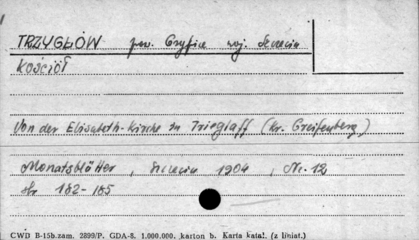 TRZYGŁÓW pow. Gryfice woj. Szczecin
Kościół
Von der Elisabeth-Kirche in Trieglaff (Kr. Greifenberg)
Monatsblätter, Szczecin 1904, Nr. 12
Str 182-185
CWD B-15b.zam. 2899/P. GDA-8. 1.000.000. karton b. Karta katal. (z liniat.)